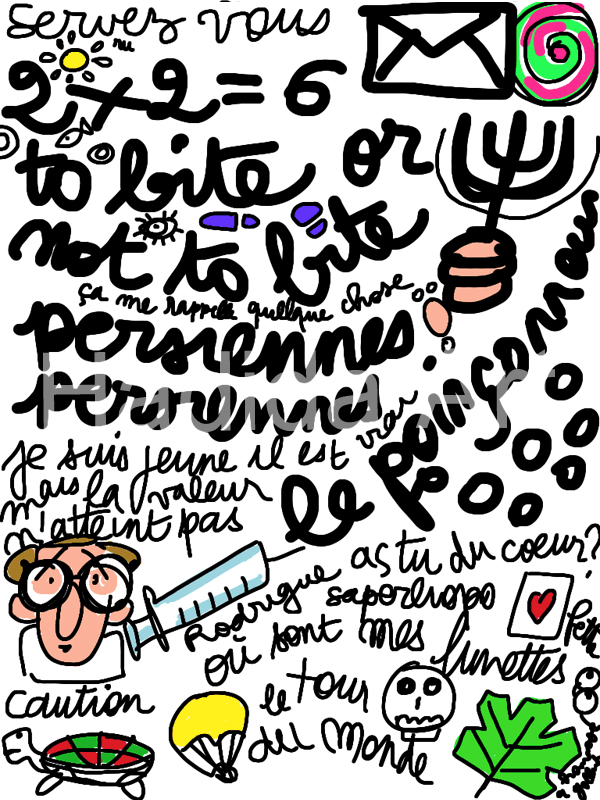 servez vous
ru
2x2=6
to bite or
not to bite
ça me rappelle quelque chose
persiennes
perrennes
Hudida Art
le poinçonneur
je suis jeune il est vrai
mais la valeur
n'atteint pas
Rodrigue as tu du coeur?
saperlipopo
où sont mes lunettes
caution
le tour
du monde